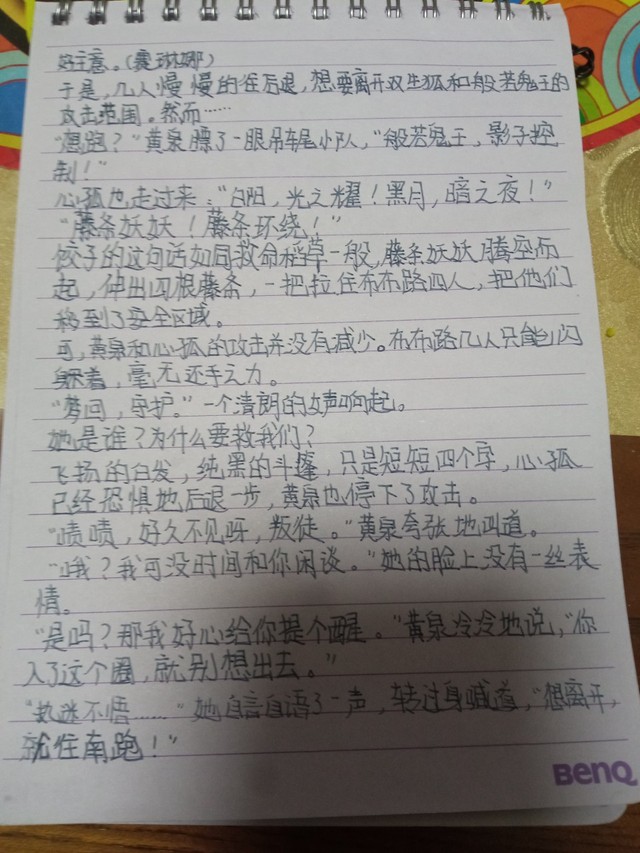 好主意。(赛琳娜)
于是,几人慢慢的往后退,想要离开双生狐和般若鬼王的
攻击范围。然而……
"想跑?"黄泉瞟了一眼吊车尾小队,"般若鬼王,影子控
制!"
心狐也走过来:"白阳,光之耀!黑月,暗之夜!"
"藤条妖妖!藤条环绕!"
饺子的这句话如同救命稻草一般,藤条妖妖腾空而
起,伸出四根藤条,一把拉住布布路四人,把他们
移到了安全区域。
可,黄泉和心狐的攻击并没有减少。布布路几人只能闪
躲着,毫无还手之力。
"梦回,守护。"一个清朗的女声响起。
她是谁?为什么要救我们?
飞扬的白发,纯黑的斗篷,只是短短四个字,心狐
已经恐惧地后退一步,黄泉也停下了攻击。
"啧啧,好久不见呀,叛徒。"黄泉夸张地叫道。
"哦?我可没时间和你闲谈。"她的脸上没有一丝表
情。
"是吗?那我好心给你提个醒。"黄泉冷冷地说,"你
入了这个圈,就别想出去。"
"执迷不悟……"她自言自语了一声,转过身喊道,"想离开,
就往南跑!"
BenQ